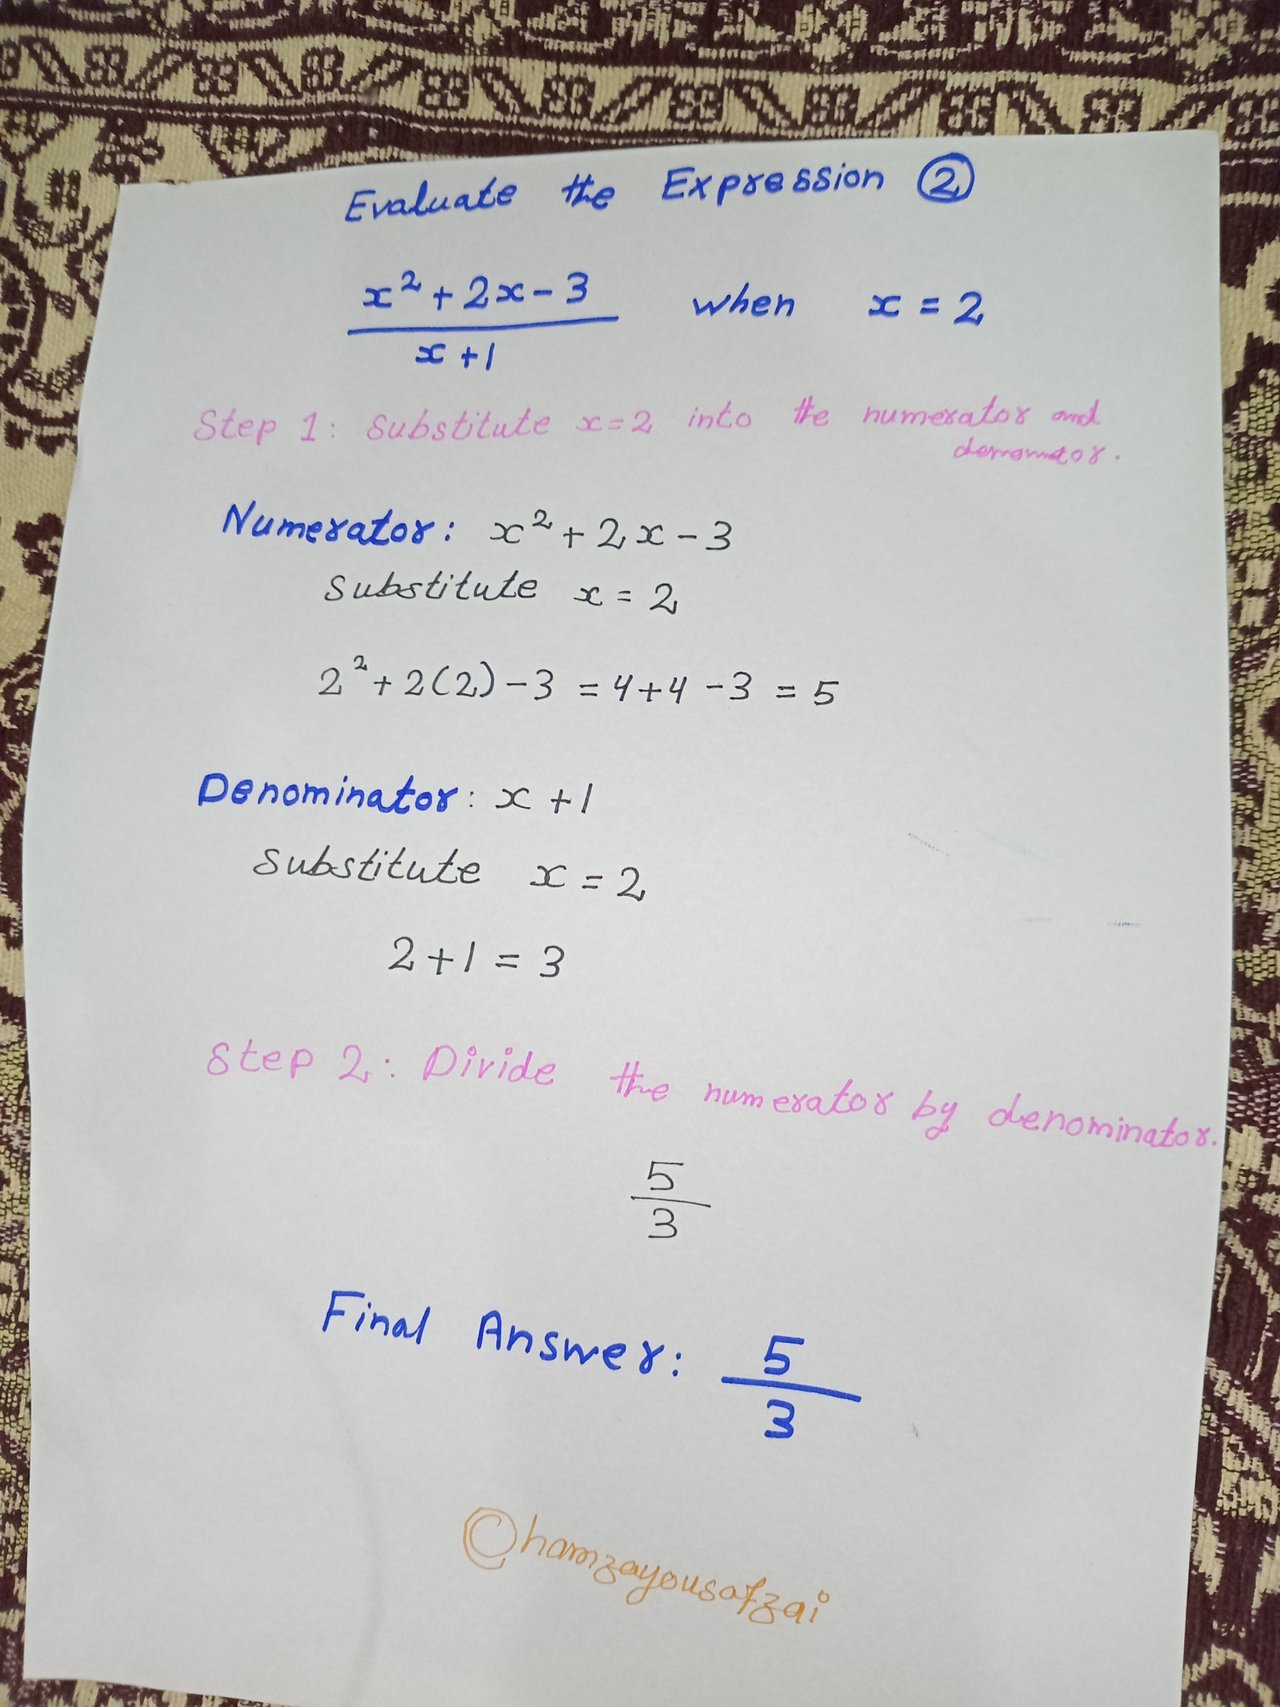 Evaluate the Expression ②
x² + 2x - 3
x + 1
when x = 2
Step 1: Substitute x=2 into the numerator and
Numerator: x² + 2x - 3
Substitute x = 2
2² + 2(2) - 3 = 4+4 - 3 = 5
Denominator: x + 1
Substitute x = 2
2 + 1 = 3
Step 2: Divide the numerator by denominator.
5
3
Final Answer: 5
3
©hamzayousafzai